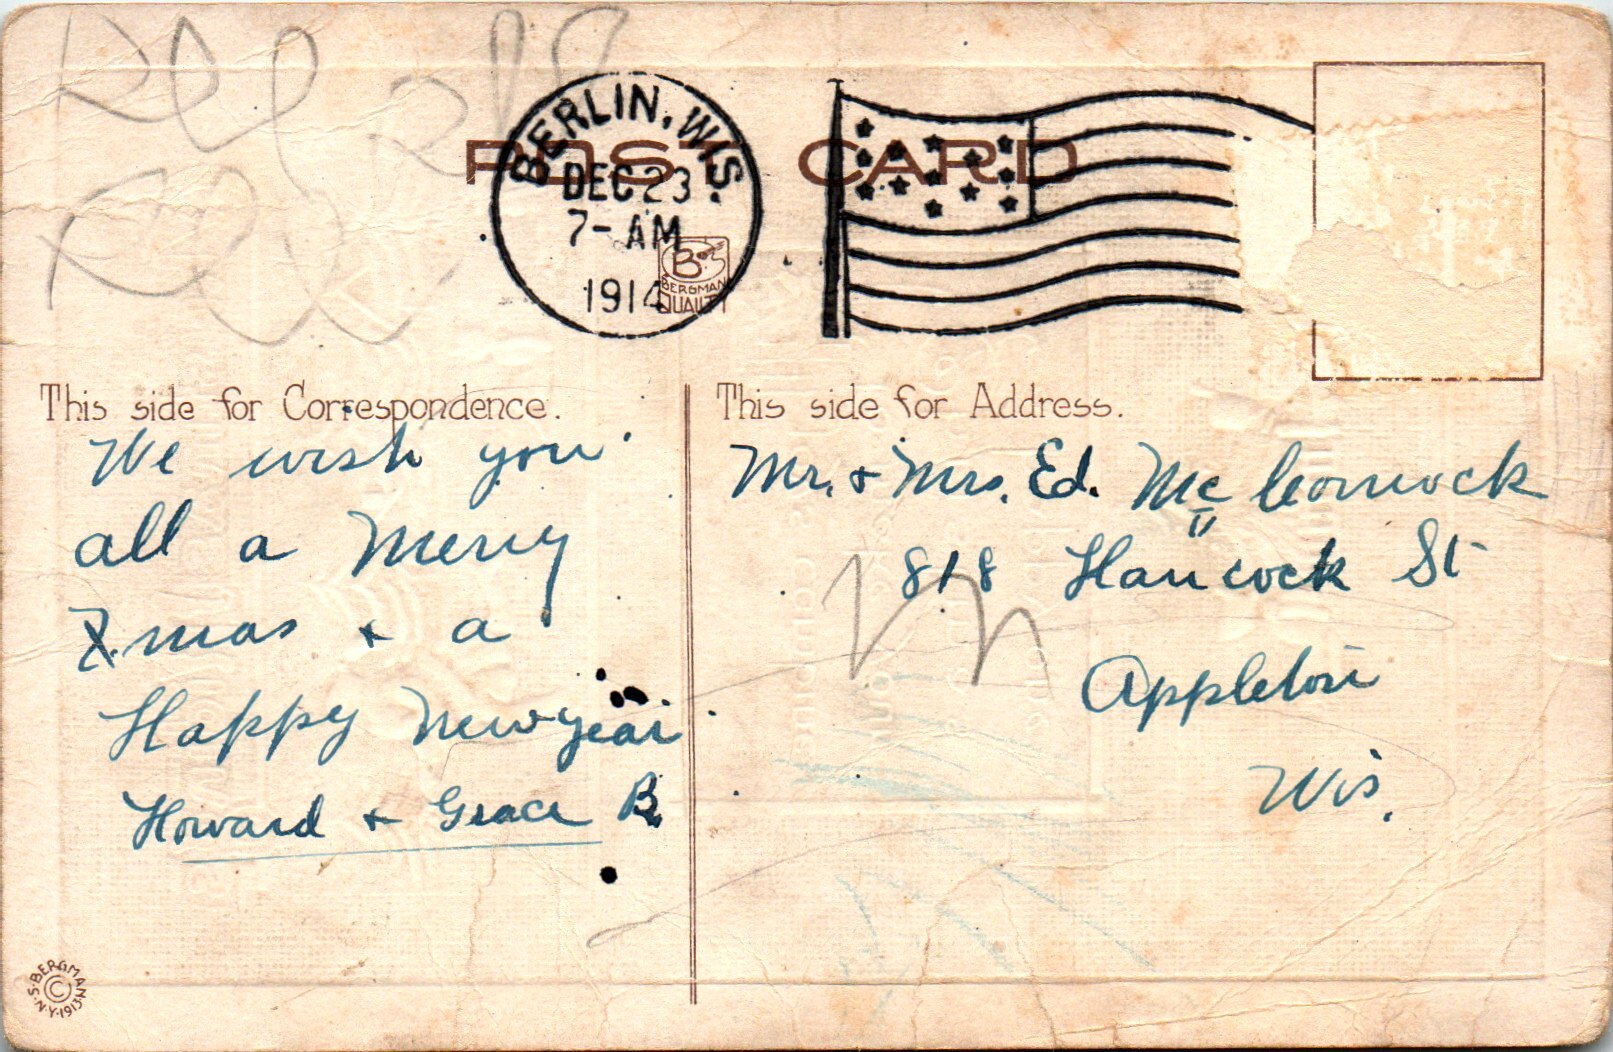 POST CARD
BERLIN, WIS.
DEC 23
7- AM
1914
B
BERGMAN
QUALITY
This side for Correspondence.
We wish you
all a Merry
Xmas + a
Happy New Year
Howard + Grace B.
This side for Address.
Mr. + Mrs. Ed. Mc Cormock
818 Hancock St
Appleton
Wis.
S. BERGMAN N.Y. 1913
©